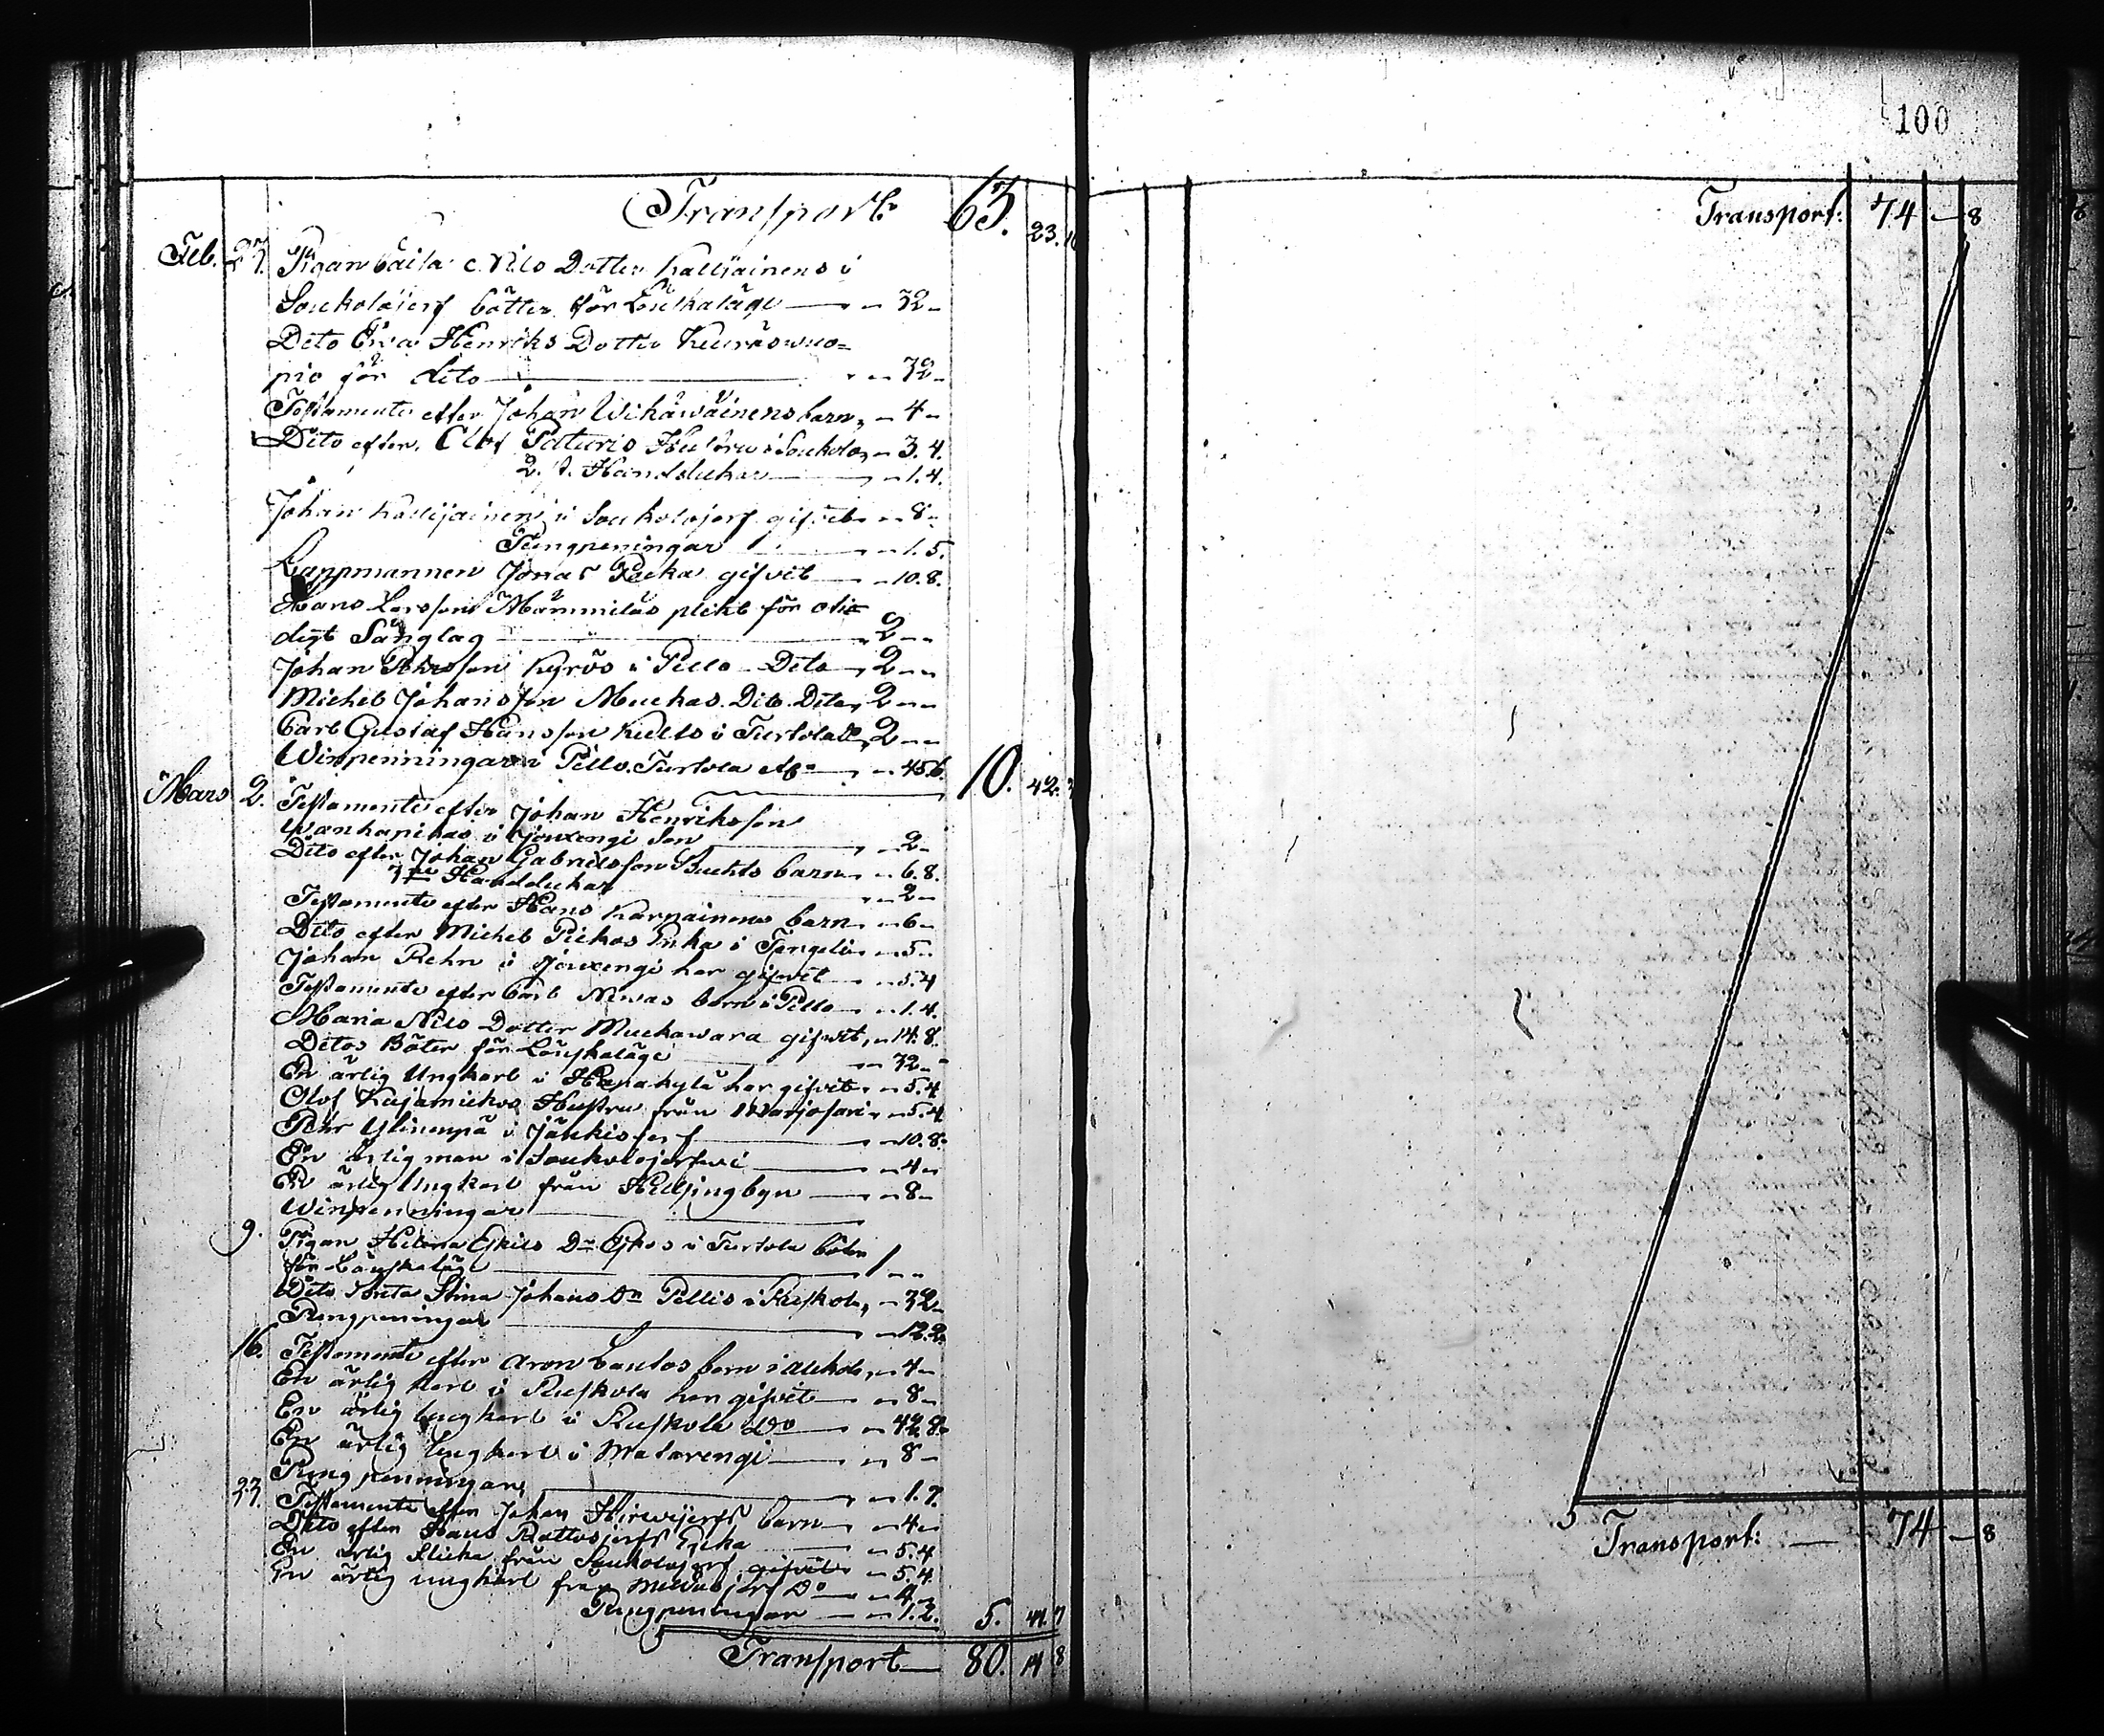 Transport 63. 23.
Feb. 27. Pigan Caisa c. Nils Dotter Kallijainens i
Soukolojerf böter för Löuskaläge — 32 –
Dito Ewa Henriks Dotter Kuuraswuo=
pio för dito — 32 –
Testamente efter Johan Wihäwäinens barn, – 4 –
Dito efter Olof Paturis Hustru i Soukolo, – 3. 4.
2. st. Handdukar — 1. 4.
Johan Kallijainen i Soukolojerf gifvit – 8 –
Pungpeningar — 1. 5.
Lappmannen Jonas Pecka gifvit — 10. 8.
Hans Larsson Mämmiläs plikt för otie
digt Sänglag — 2 – –
Johan Persson Kyrös i Pello Dito, 2 – –
Michel Johansson Muckas Dito Dito, 2 – –
Carl Gustaf Hansson i Turtola 2 – –
Winpenningar i Pello, Turtola — 45. 6. 10. 42.
Mars 2. Testamente efter Johan Henriksson
Wanhapihas i Jouxengi Son — 2 –
Dito efter Johan Gabrielsson Buchts barn – 6. 8.
3 Handdukar — 2 –
Testamente efter Hans Karpainens barn – 6 –
Dito efter Michel Pickos Enka i Tengeli – 5 –
Johan Rehn i Jouxengi har gifvit – 5. 4
Testamente efter Carl Niwas barn i Pello – 1. 4.
Maria Nils Dotter Muckawara gifvit, – 14. 8.
Ditos Böter för Löuskaläge — 32 –
En ärlig Ungkarl i har gifvit – 5. 4
Olof Kujamickos Hustru från Marjosari – 5. 4
Pehr Ylinenpä i Jänkisjerf — 10. 8.
En ärlig man i Soukolojerfwi — 4 –
En ärlig Ungkarl från Helsingbyn — 8 –
Winpenningar
9. Pigan Helena Eskils Dr. i Turtola böter
för Löuskaläge — 1 – –
Dito Greta Stina Johans Dr. Pellis i Ruskola, – 32 –
Pungpeningar — 12. 2.
16. Testamente efter Aron barn i, – 4 –
En ärlig karl i Ruskola har gifvit – 8 –
En ärlig Ungkarl i Ruskola Do — 42. 8.
En ärlig Ungkarl i Matarengi — 8 –
Pungpenningar — 1. 7.
23. Testamente efter Johan Hirwijerfs barn – 4 –
Dito efter Hans Rattosjerfs — 5. 4
En ärlig flicka från Soukolojerf gifvit – 5. 4
En ärlig ungkarl från Do — 4 –
Pungpeningar — 1. 2. 5. 44. 7
Transport — 80. 14 8
100
Transport: 74 – 8
Transport: — 74 – 8